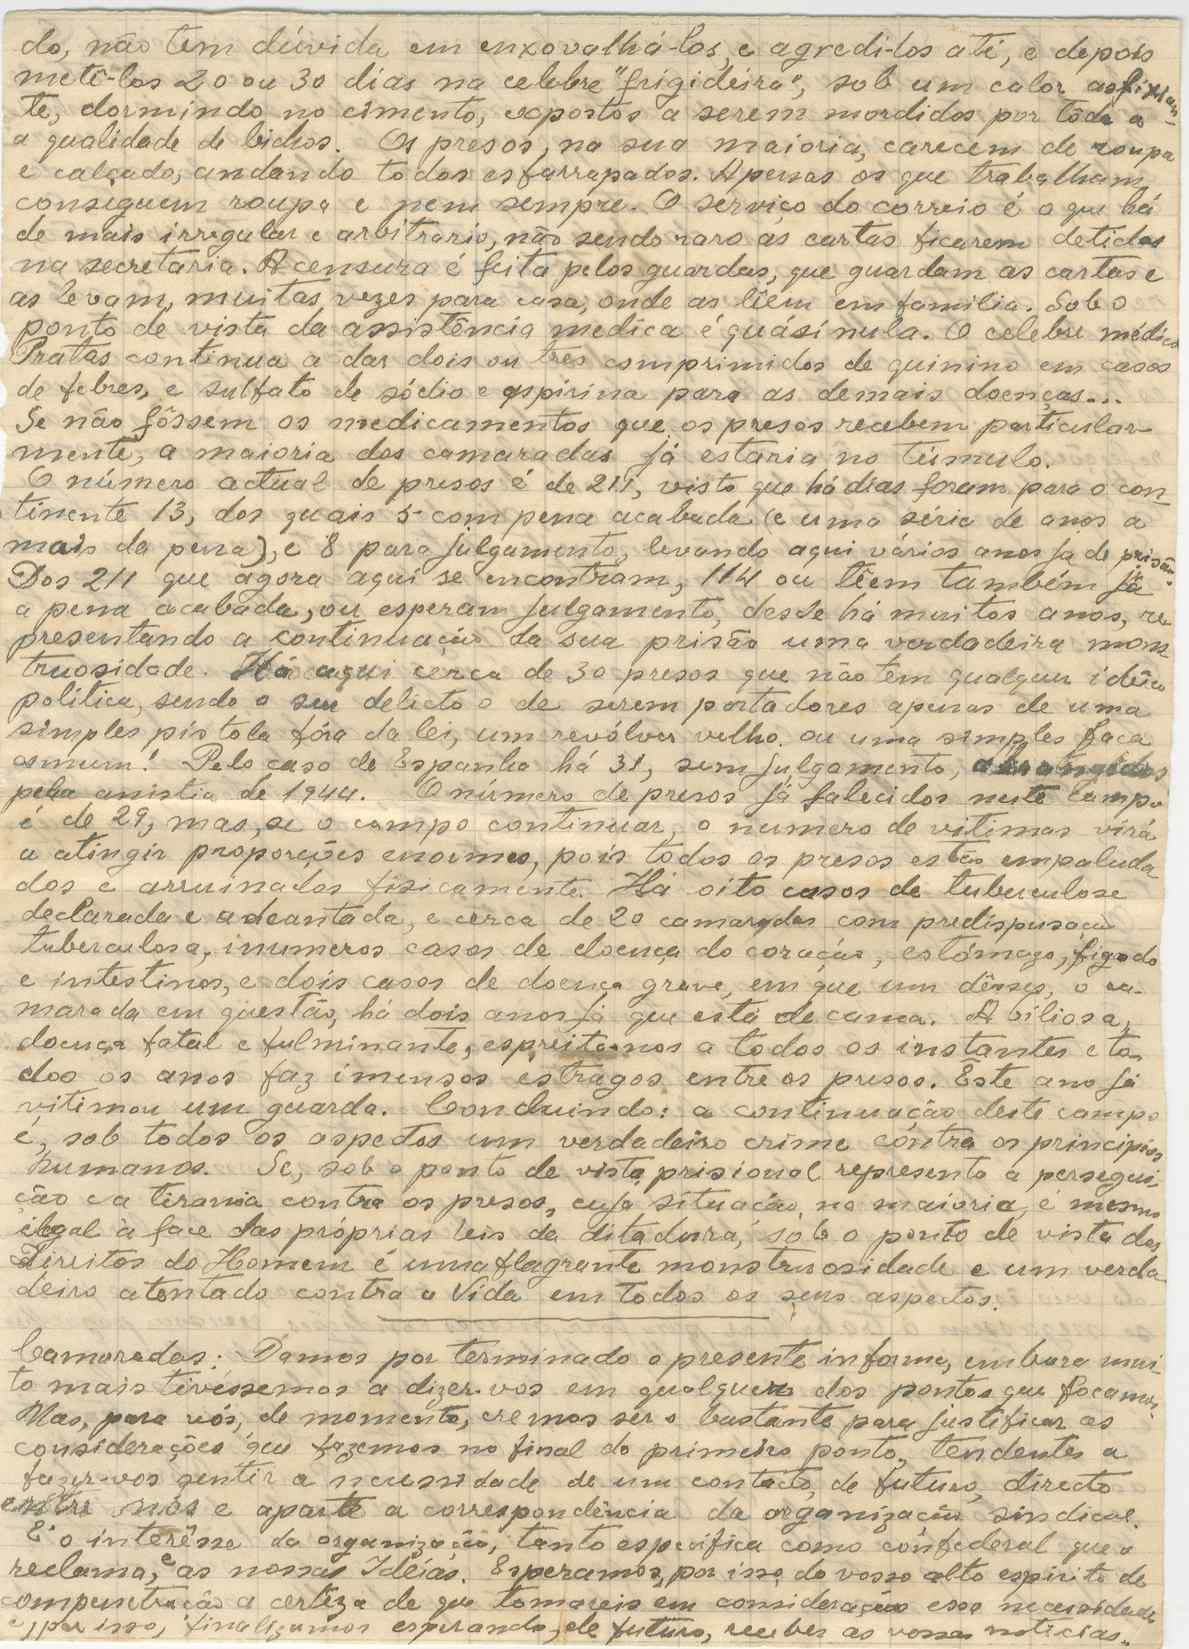 do, não tem dúvida em enxovalhá-los, e agredi-los até, e depois
metê-los 20 ou 30 dias na celebre "frigideira", sob um calor asfixian-
te, dormindo no cimento, expostos a serem mordidos por toda a
a qualidade de bichos. Os presos, na sua maioria, carecem de roupa
e calçado, andando todos esfarrapados. Apenas os que trabalham
conseguem roupa e nem sempre. O serviço do correio é o que há
de mais irregular e arbitrário, não sendo raro as cartas ficarem detidas
na secretaria. A censura é feita pelos guardas, que guardam as cartas e
as levam, muitas vezes para casa, onde as lêem em familia. Sob o
ponto de vista da assistência medica é quási nula. O celebre médico
Pratas continua a dar dois ou tres comprimidos de quinino em casos
de febres, e sulfato de sódio e aspirina para as demais doenças...
Se não fôssem os medicamentos que os presos recebem particular-
mente, a maioria dos camaradas já estaria no túmulo.
O número actual de presos é de 211, visto que há dias foram para o con-
tinente 13, dos quais 5 com pena acabada (e uma série de anos a
mais da pena), e 8 para julgamento, levando aqui vários anos já de prisão.
Dos 211 que agora aqui se encontram, 114 ou têem também já
a pena acabada, ou esperam julgamento, desde há muitos anos, re-
presentando a continuação da sua prisão uma verdadeira mons-
truosidade. Há aqui cerca de 30 presos que não têm qualquer idéia
política, sendo o seu delicto o de serem portadores apenas de uma
simples pistola fóra da lei, um revólver velho ou uma simples faca
comum! Pelo caso de Espanha há 31, sem julgamento, abrangidos
pela amistia de 1944. O número de presos já falecidos neste campo
é de 29, mas, se o campo continuar, o numero de vitimas virá
a atingir proporções enormes, pois todos os presos estão empaluda-
dos e arruinados fisicamente. Há oito casos de tuberculose
declarada e adeantada, e cerca de 20 camaradas com predisposação
tuberculosa, inumeros casos de doença do coração, estómago, figado
e intestinos, e dois casos de doença grave, em que um dêsses, o ca-
marada em questão, há dois anos já que está de cama. A biliosa,
doença fatal e fulminante, espreita-nos a todos os instantes e to-
dos os anos faz imensos estragos entre os presos. Este ano já
vitimou um guarda. Concluindo: a continuação deste campo
é, sob todos os aspectos um verdadeiro crime contra os principios
humanos. Se, sob o ponto de vista prisional representa a persegui-
ção e a tirania contra os presos, cuja situação, na maioria, é mesmo
ilegal à face das próprias leis da ditadura, sob o ponto de vista dos
Direitos do Homem é uma flagrante monstruosidade e um verda-
deiro atentado contra a Vida em todos os seus aspectos.
Camaradas: Damos por terminado o presente informe, embora mui-
to mais tivéssemos a dizer-vos em qualquer dos pontos que focamos.
Mas, para vós, de momento, cremos ser o bastante para justificar as
considerações que fazemos no final do primeiro ponto, tendentes a
fazer-vos sentir a necessidade de um contacto, de futuro, directo
entre nós e aparte a correspondência da organização sindical.
E' o interêsse da organização, tanto especifica como confederal que o
reclama, e as nossas Idéias. Esperamos, por isso, do vosso alto espirito de
compenetração a certeza de que tomareis em consideração essa necessidade
e, por isso, finalizamos esperando, de futuro, receber as vossas noticias.